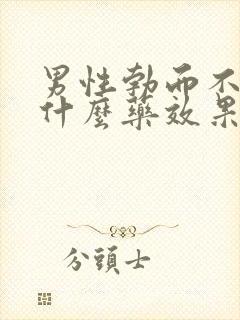 男性勃而不
什麼藥效果
分頭士